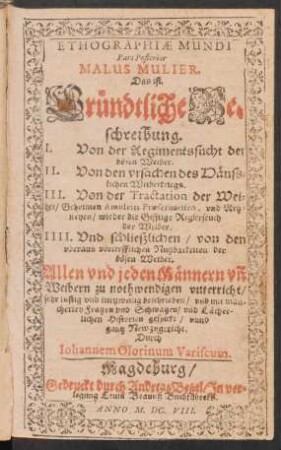 ETHOGRAPHIÆ MUNDI
Pars Posterior
MALUS MULIER.
Das ist.
Gründtliche Be-
schreibung.
I. Von der Regimentssucht der
bösen Weiber.
II. Von den vrsachen des Häuss-
lichen Weiberkriegs.
III. Von der Tractation der Wei-
ber/ Geheimen Præservativen/ vnd Artz-
neyen/ wieder die Gifftige Regierseuch
der Weiber.
IIII. Vnd schließlichen/ von den
vberaus vortrefflichen Nutzbarkeiten der
bösen Weiber.
Allen vnd jeden Männern vñ
Weibern zu nothwendigen vnterricht/
sehr lustig vnd kurtzweilig beschrieben/ vnd mit man-
cherley Fragen vnd Schwäncken/ vnd Lächer-
lichen Historien gespickt/ vnnd
gantz New zugericht.
Durch
Iohannem Olorinum Variscum.
Magdeburg/
Gedruckt durch Andreas Betzel/ In ver-
legung Levin Brauns Buchführers.
ANNO M. DC. VIII.